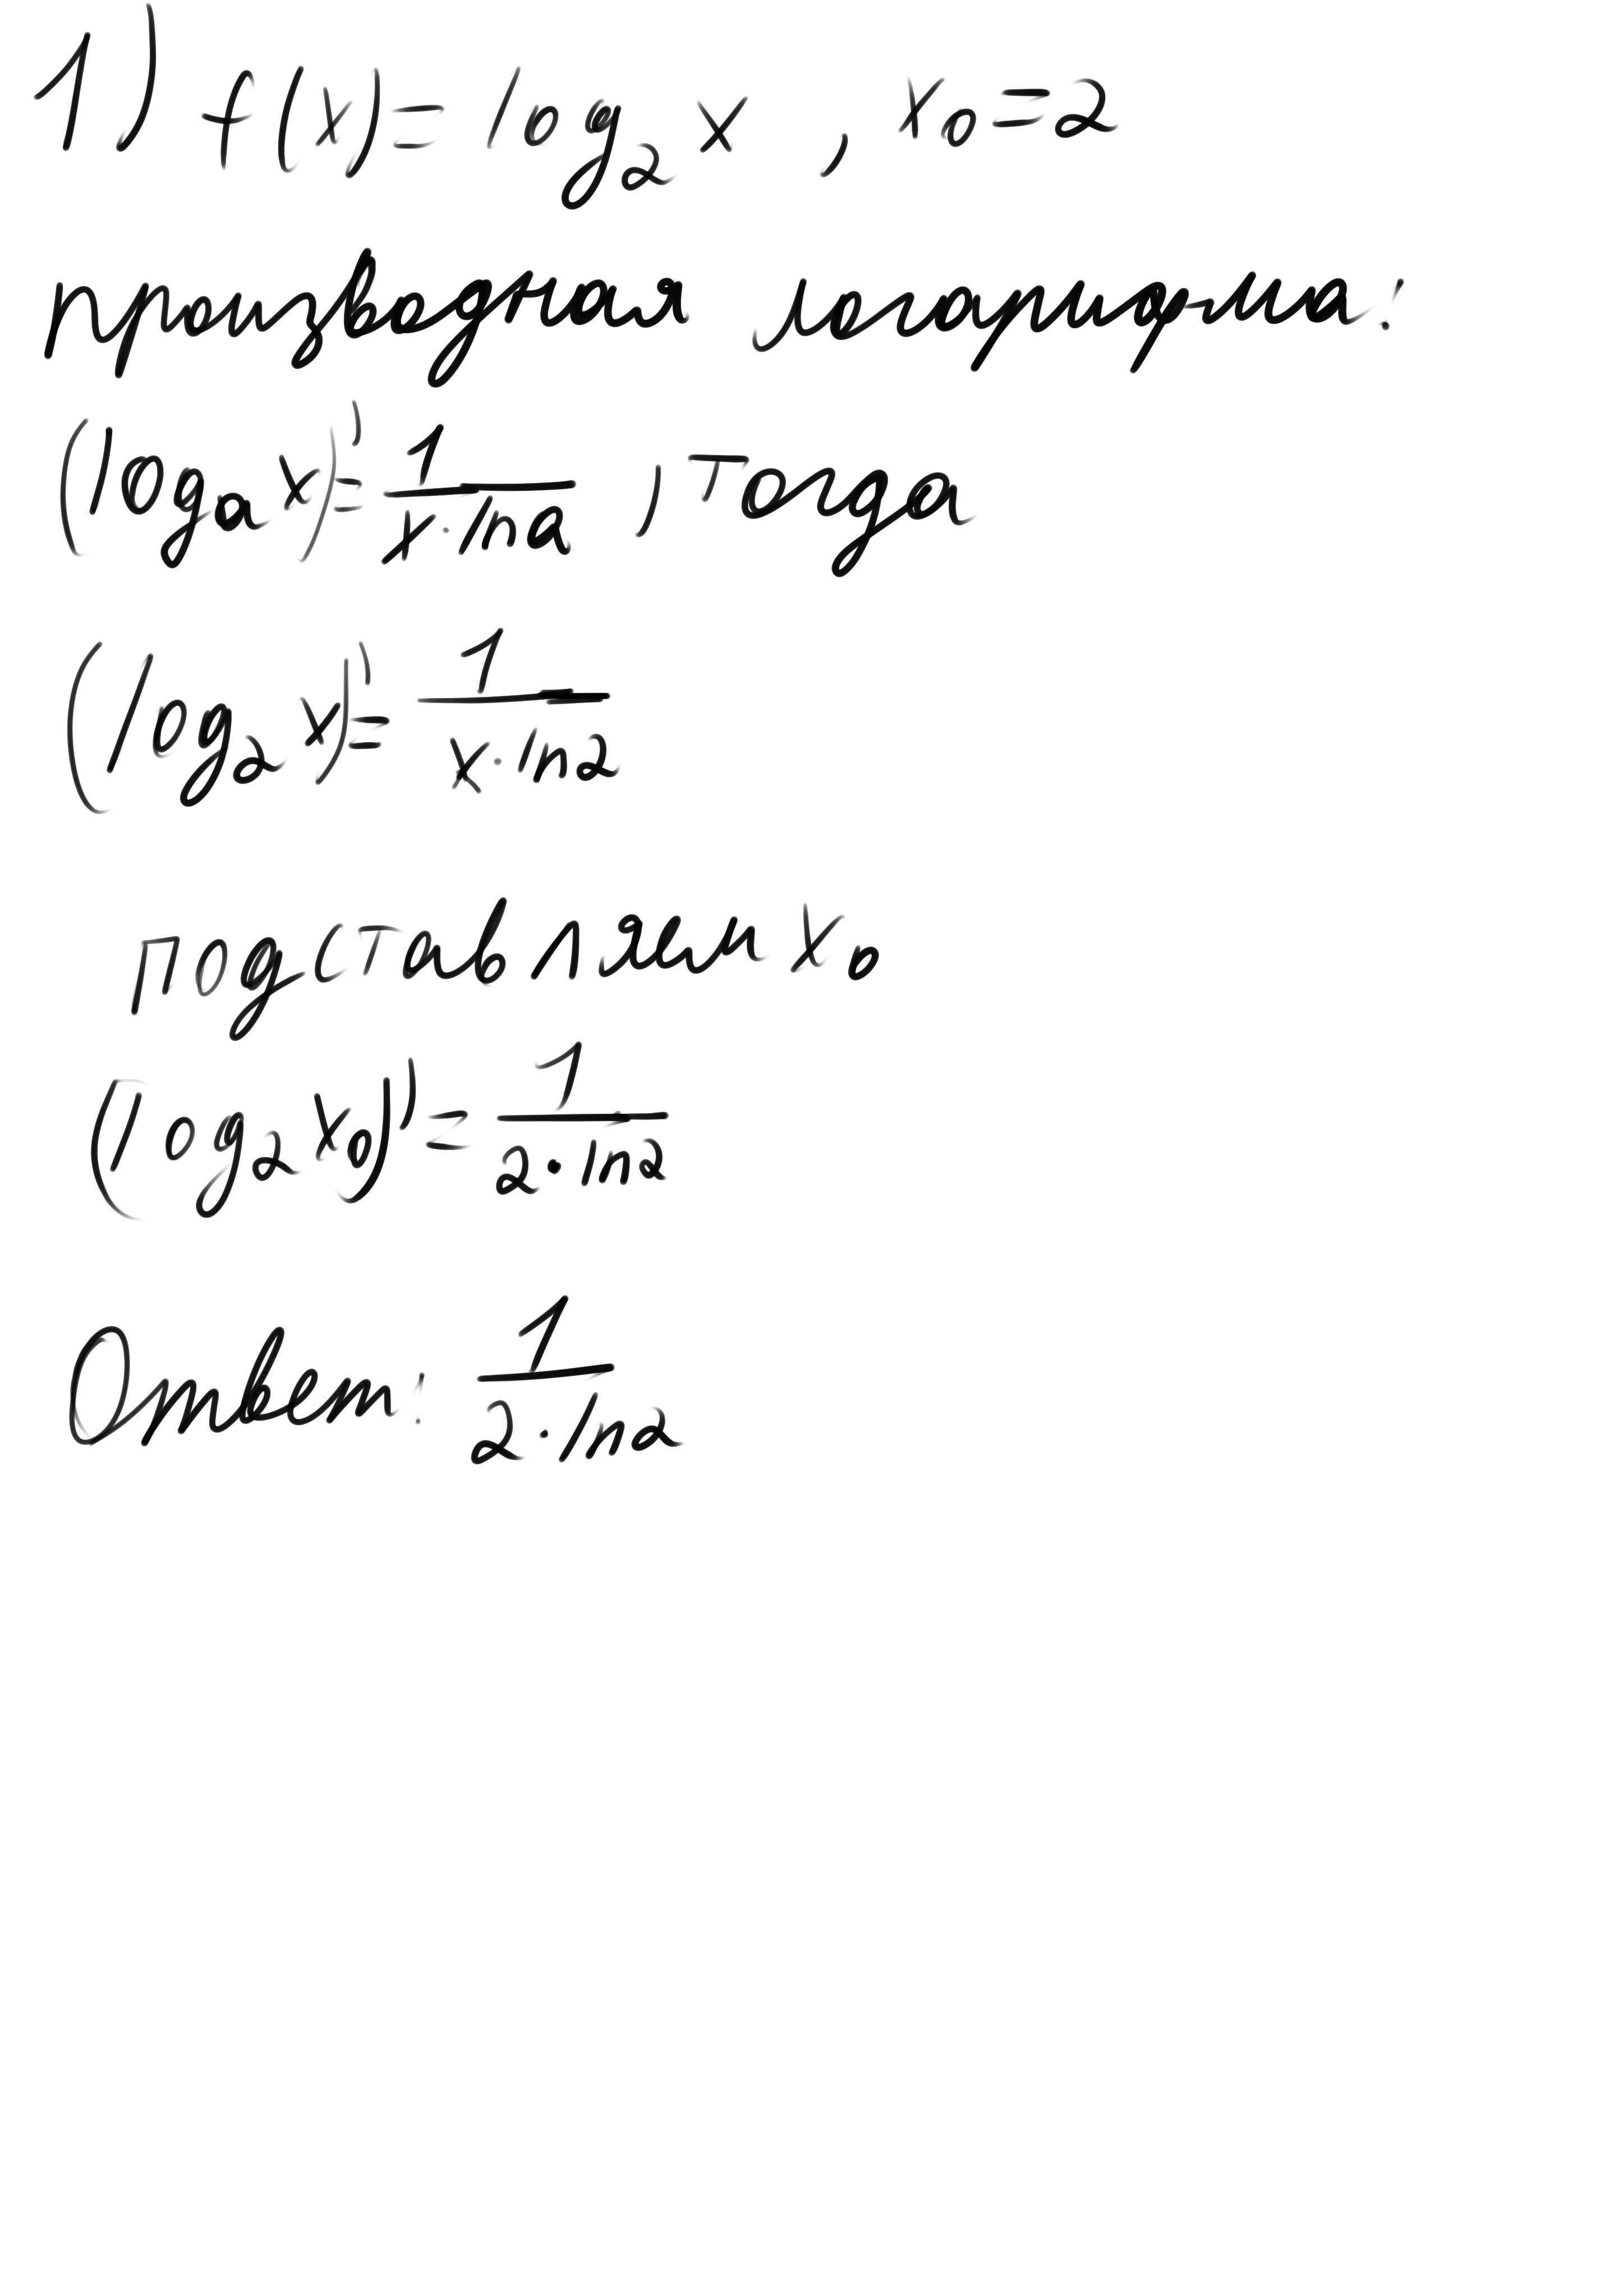 1) f(x) = log₂ x , x₀ = 2
производная логарифма:
(logₐ x)' = 1/(x · ln a) , тогда
(log₂ x)' = 1/(x · ln 2)
подставляем x₀
(log₂ x₀)' = 1/(2 · ln 2)
Ответ: 1/(2 · ln 2)